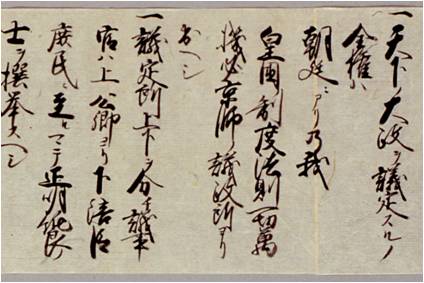 一天下ノ大政ヲ議定スルノ
全権ハ
朝廷ニアリ乃我
皇國制度法則一切萬
機必京師ノ議政所ヨリ
出ヘシ
一議定所上下ヲ分チ議事
官ハ上公卿ヨリ下陪臣
庶民ニ至ルマテ正明純良ノ
士ヲ撰挙スヘシ